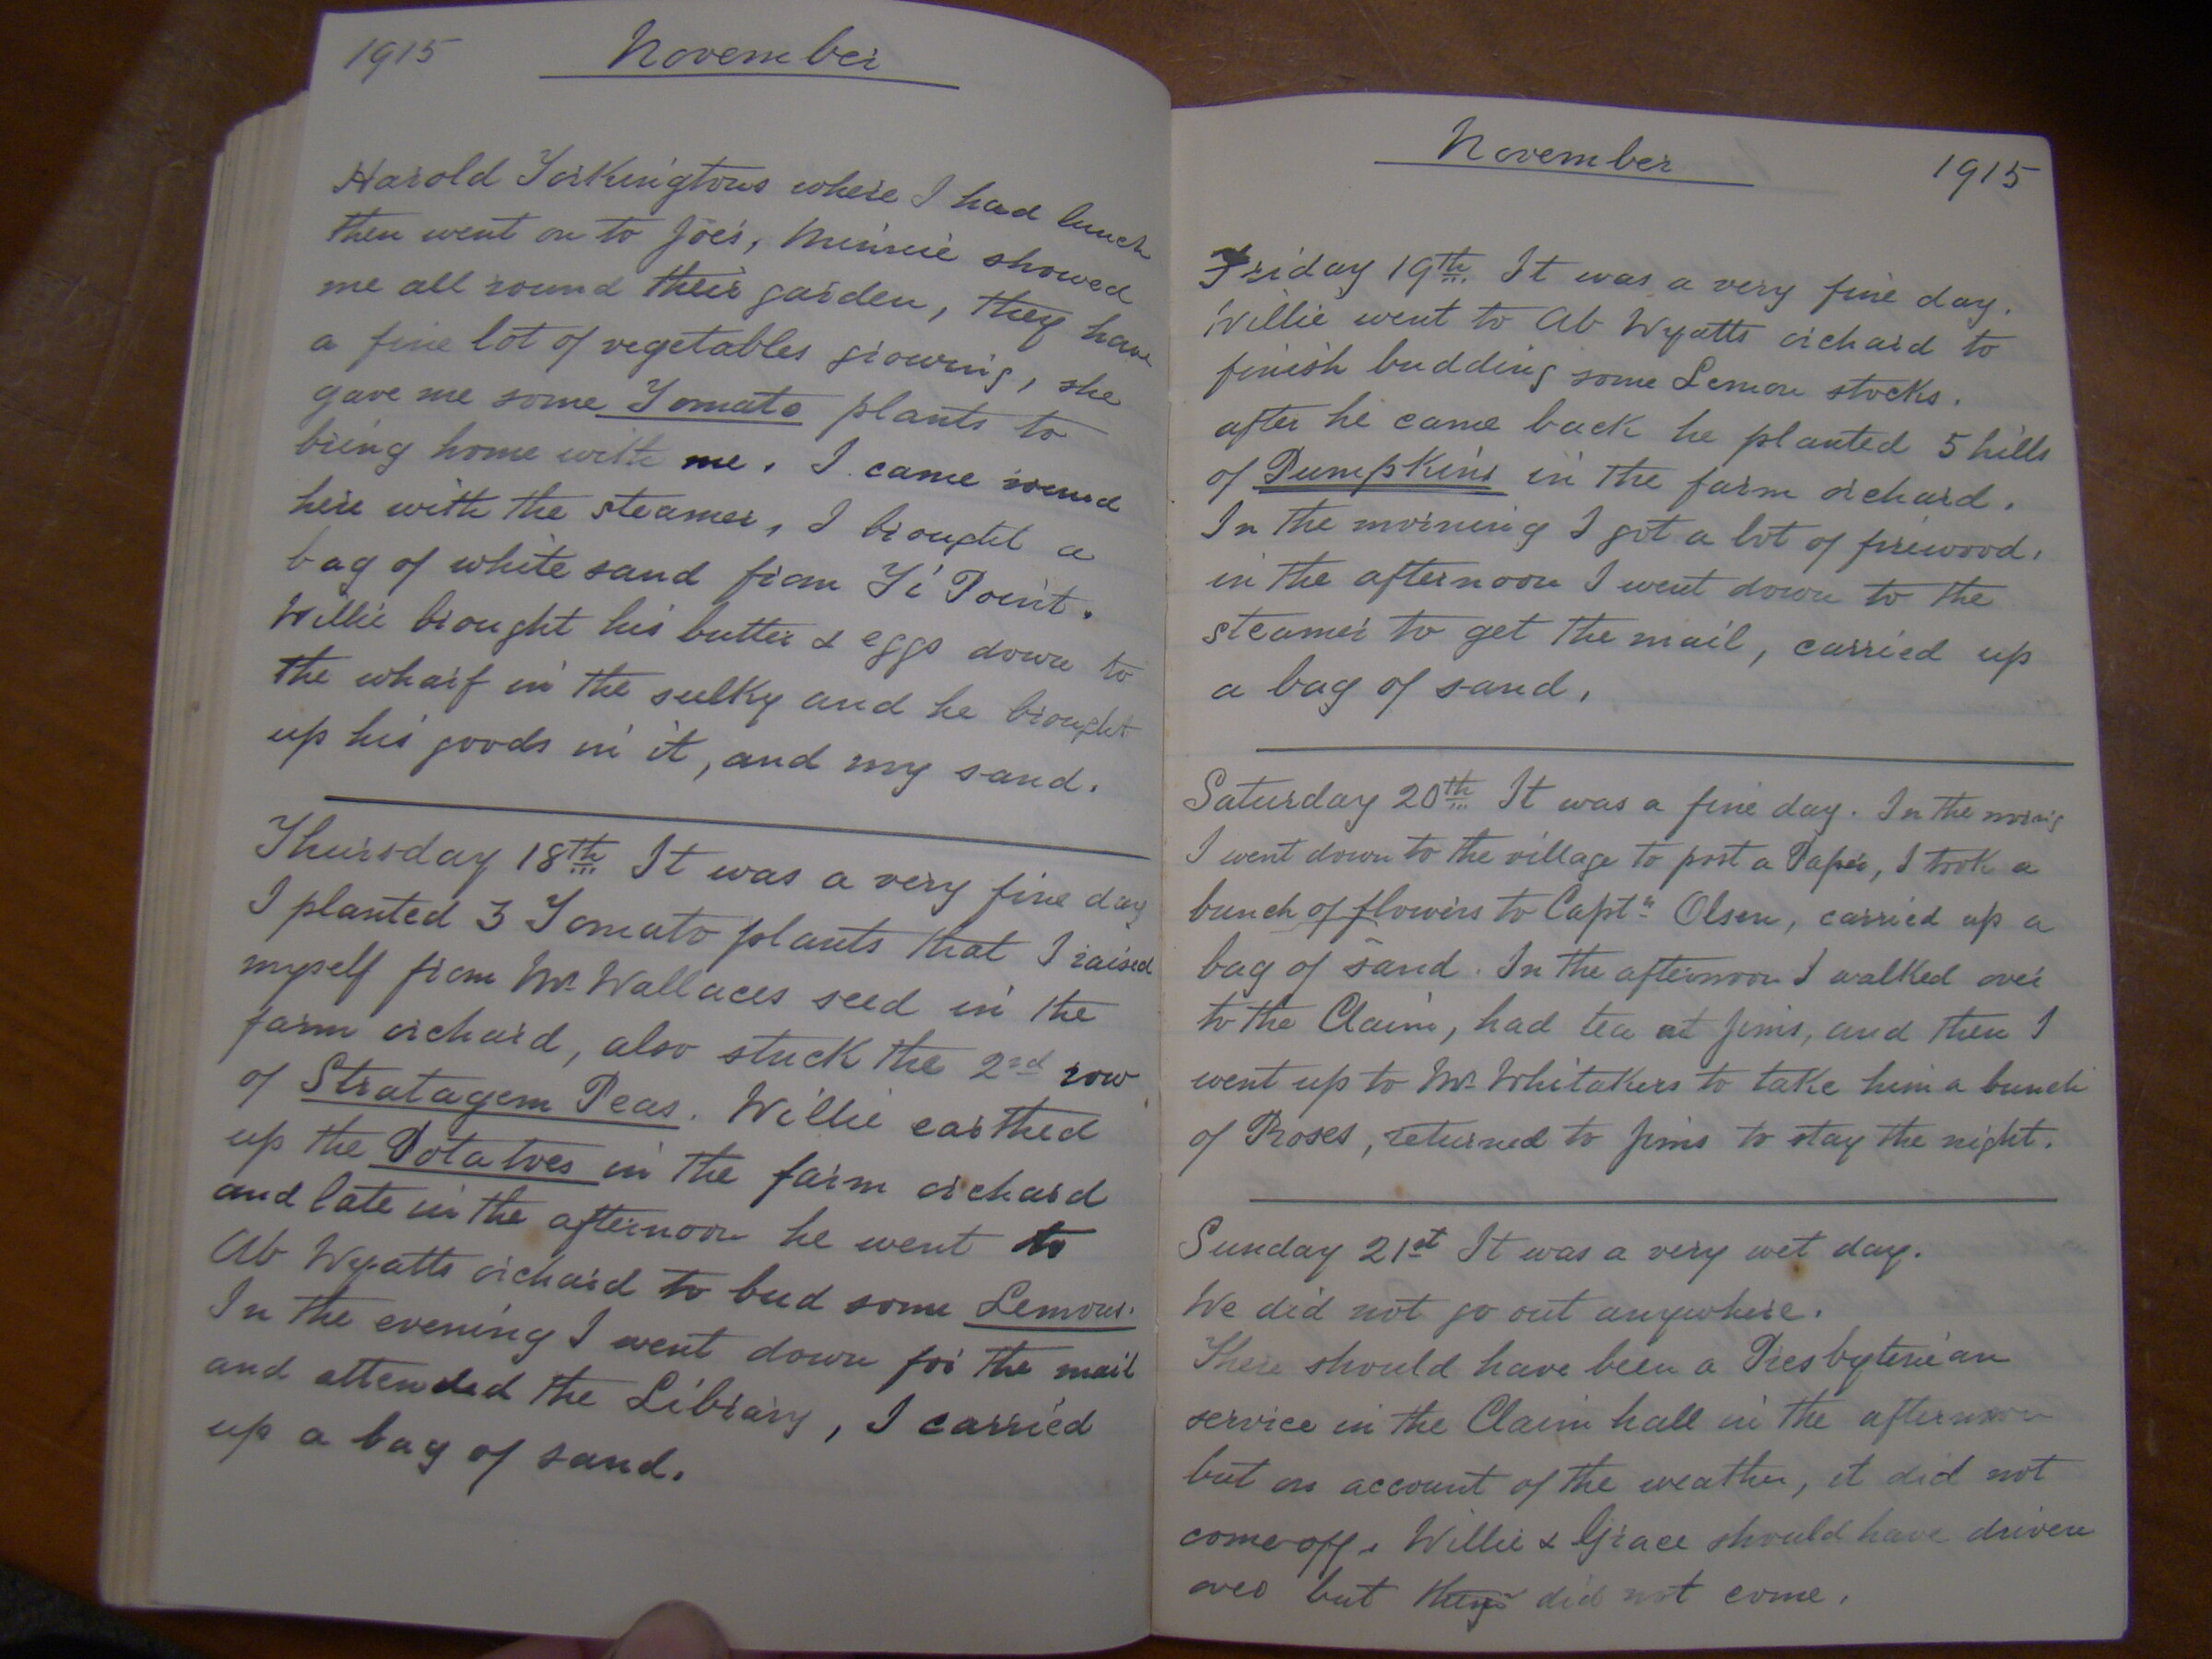 1915 November
Harold Torkingtons where I had lunch
then went on to Joes, Minnie showed
me all round their garden, they have
a fine lot of vegetables growing, she
gave me some Tomato plants to
bring home with me. I came round
here with the steamer, I brought a
bag of white sand from Ti Point.
Willie brought his butter & eggs down to
the wharf in the sulky and he brought
up his goods in it, and my sand.
Thursday 18th It was a very fine day
I planted 3 Tomato plants that I raised
myself from Mr Wallaces seed in the
farm orchard, also stuck the 2nd row
of Stratagem Peas. Willie earthed
up the Potatoes in the farm orchard
and late in the afternoon he went to
Ab Wyatts orchard to bud some Lemons.
In the evening I went down for the mail
and attended the Library, I carried
up a bag of sand.
November 1915
Friday 19th It was a very fine day.
Willie went to Ab Wyatts orchard to
finish budding some Lemon stocks.
after he came back he planted 5 hills
of Pumpkins in the farm orchard.
In the morning I got a lot of firewood,
in the afternoon I went down to the
steamer to get the mail, carried up
a bag of sand.
Saturday 20th It was a fine day. In the morning
I went down to the village to post a Paper, I took a
bunch of flowers to Captn Olsen, carried up a
bag of sand. In the afternoon I walked over
to the Claim, had tea at Jims, and then I
went up to Mr Whitakers to take him a bunch
of Roses, returned to Jims to stay the night.
Sunday 21st It was a very wet day.
We did not go out anywhere.
There should have been a Presbyterian
service in the Claim hall in the afternoon
but on account of the weather, it did not
come off. Willie & Grace should have driven
over but they did not come.